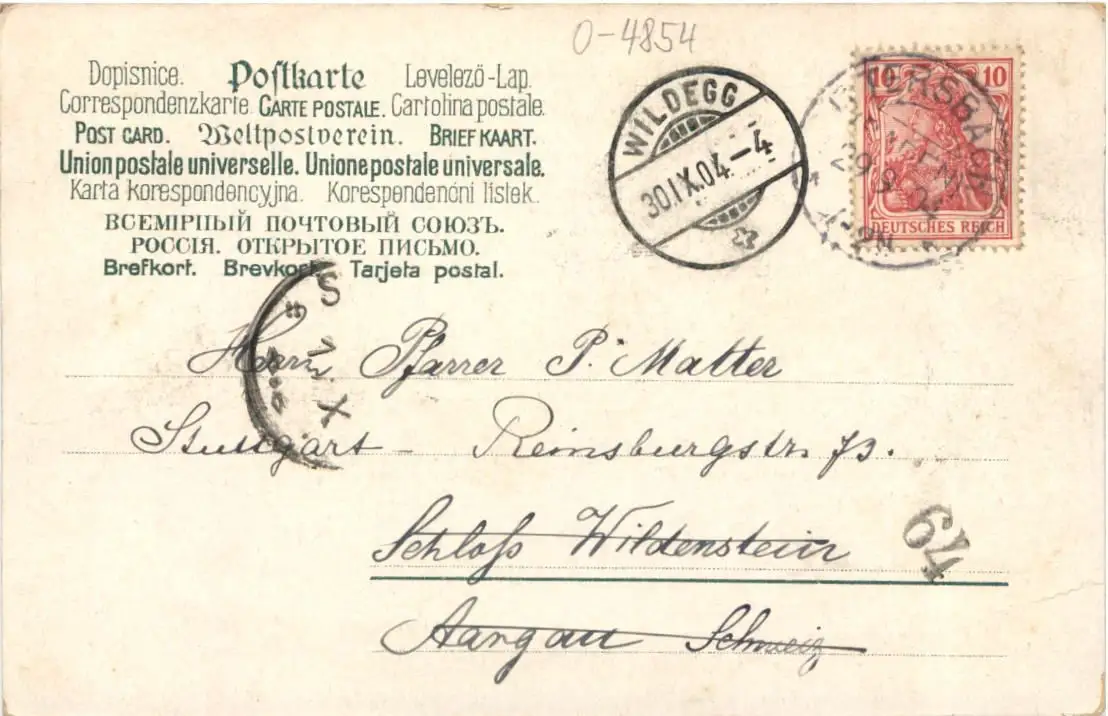 O-4854
Dopisnice. Postkarte Levelező-Lap.
Correspondenzkarte. CARTE POSTALE. Cartolina postale.
POST CARD. Weltpostverein. BRIEFKAART.
Union postale universelle. Unione postale universale.
Karta korespondencyjna. Korespondenční lístek.
ВСЕМІРНЫЙ ПОЧТОВЫЙ СОЮЗЪ.
РОССІЯ. ОТКРЫТОЕ ПИСЬМО.
Brefkort. Brevkort. Tarjeta postal.
WILDEGG
30.IX.04.–4
10 10
DEUTSCHES REICH
29.9.04
S
1. X
Herrn Pfarrer P. Matter
Stuttgart – Reinsburgstr. 73.
Schloß Wildenstein
64
Aargau Schweiz